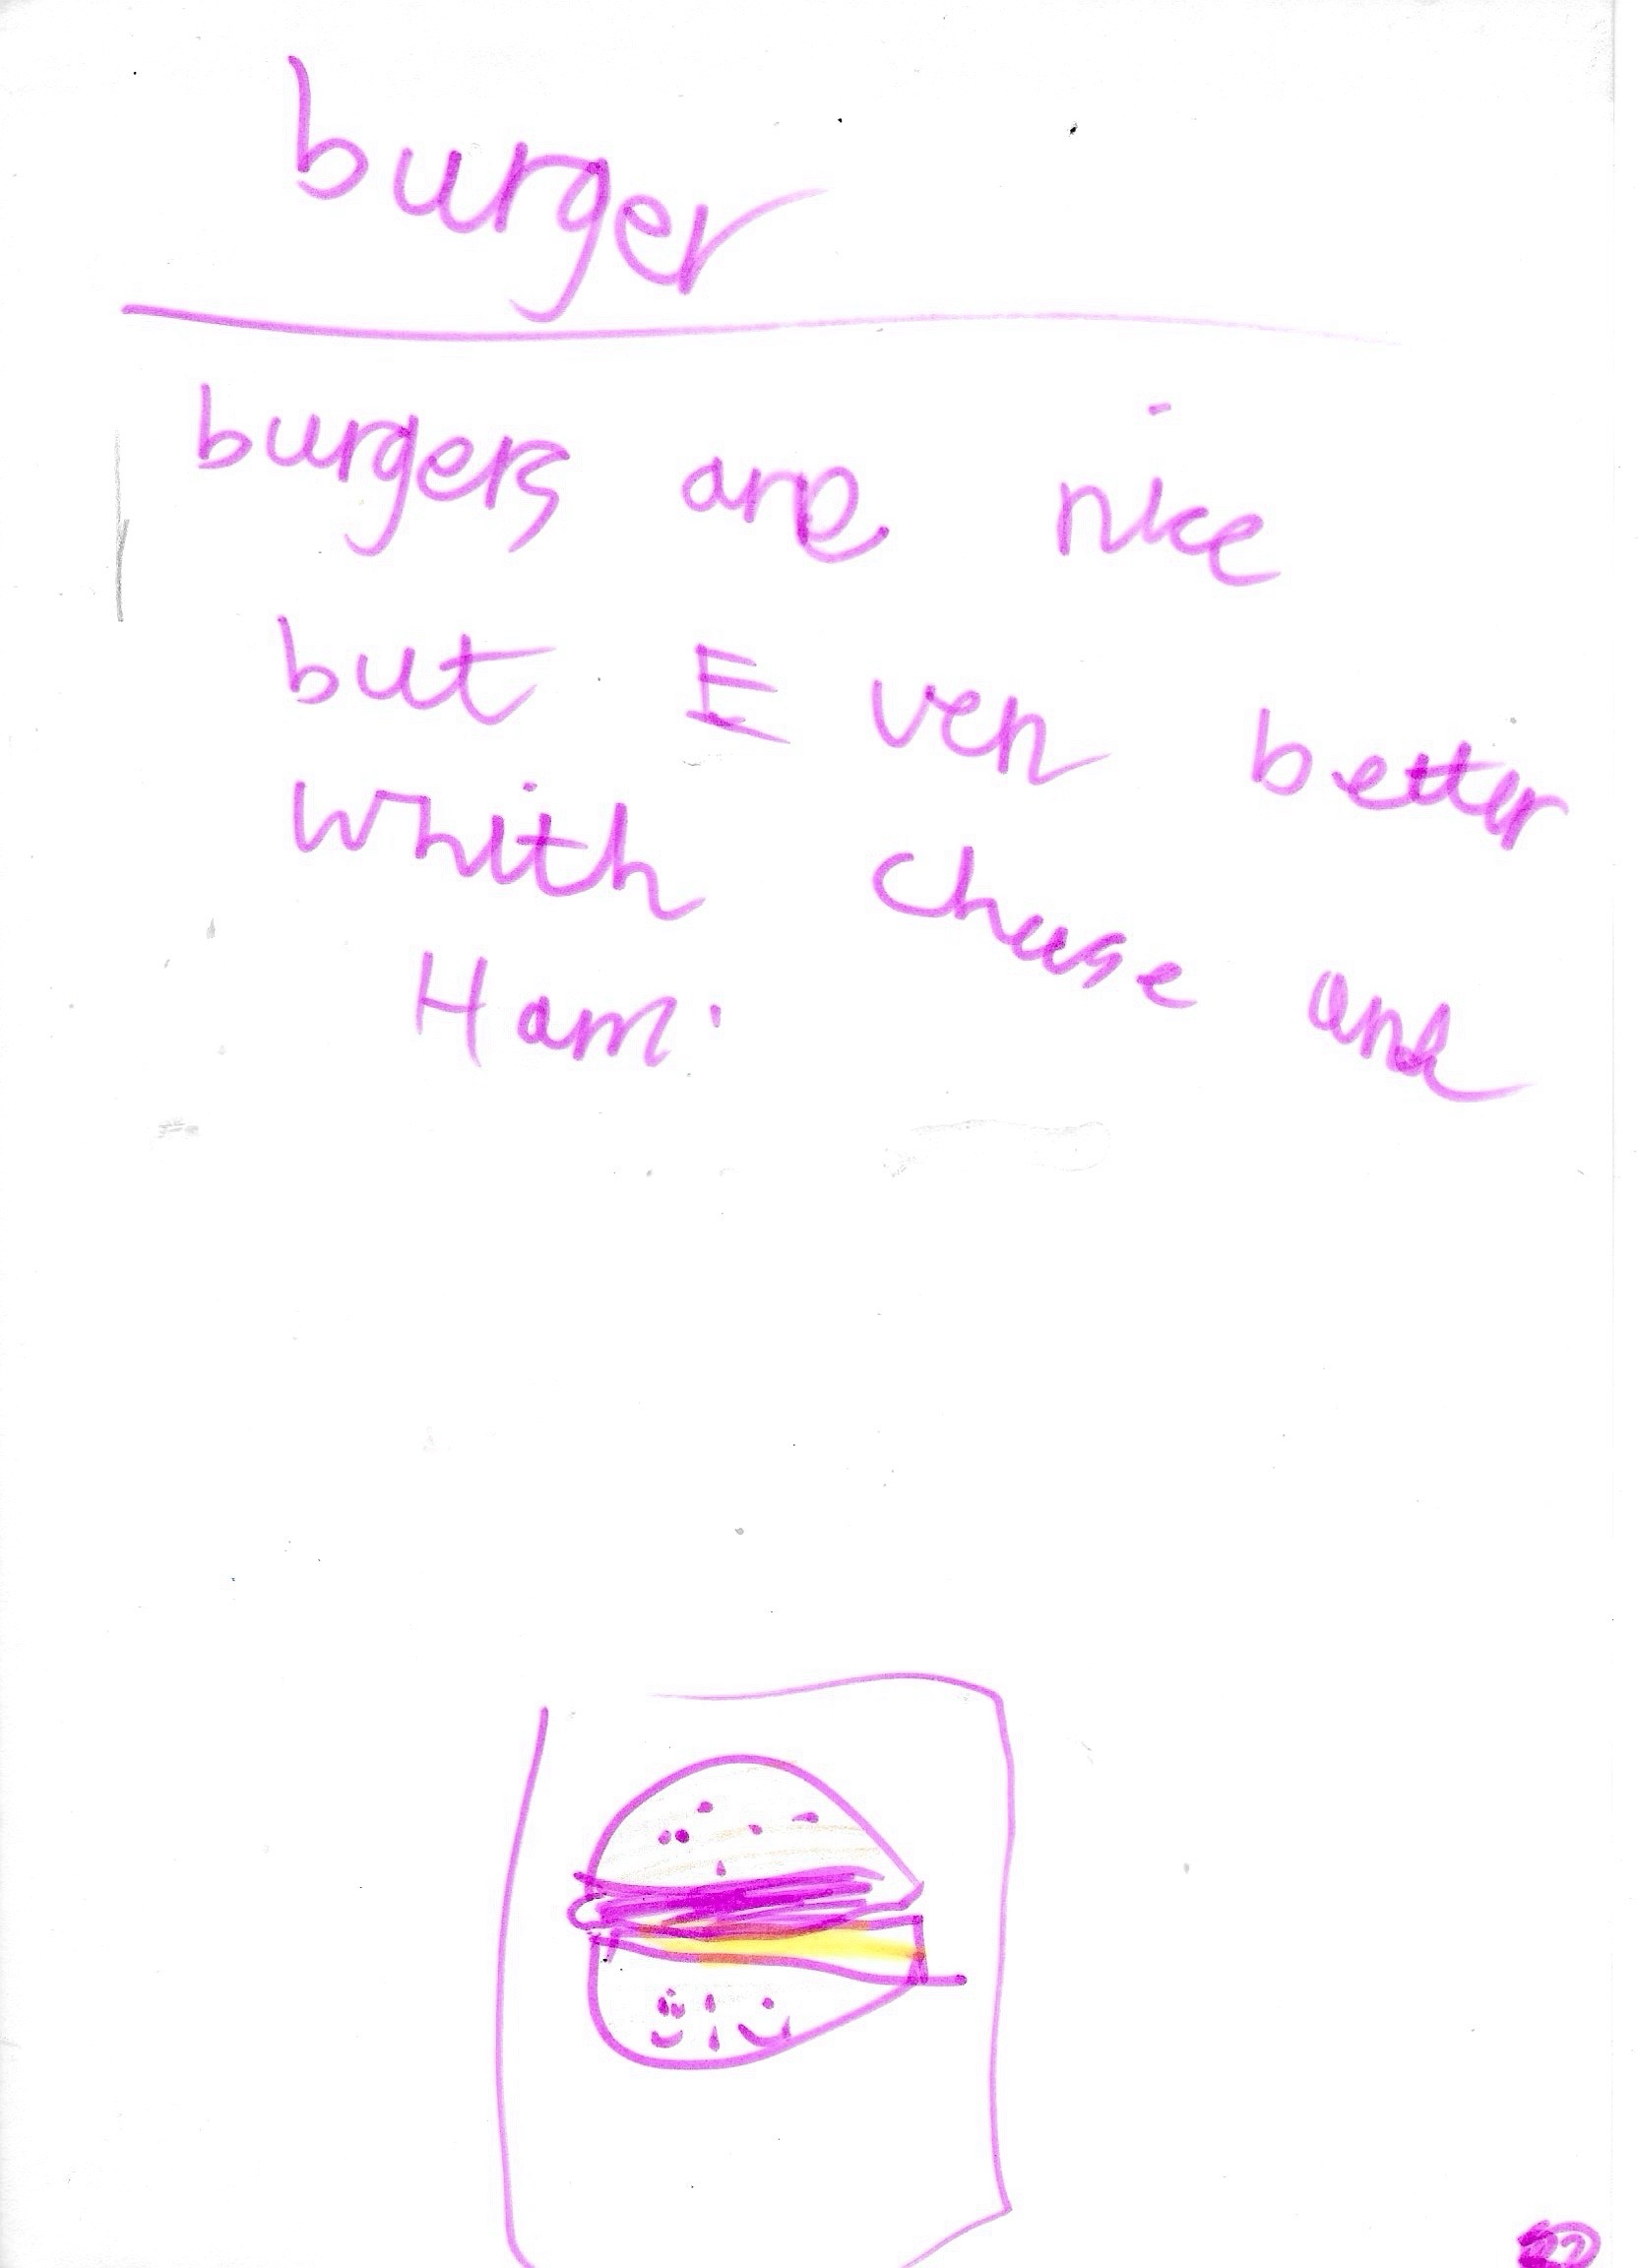 burger
burgers are nice
but E ven better
whith chuse and
Ham.